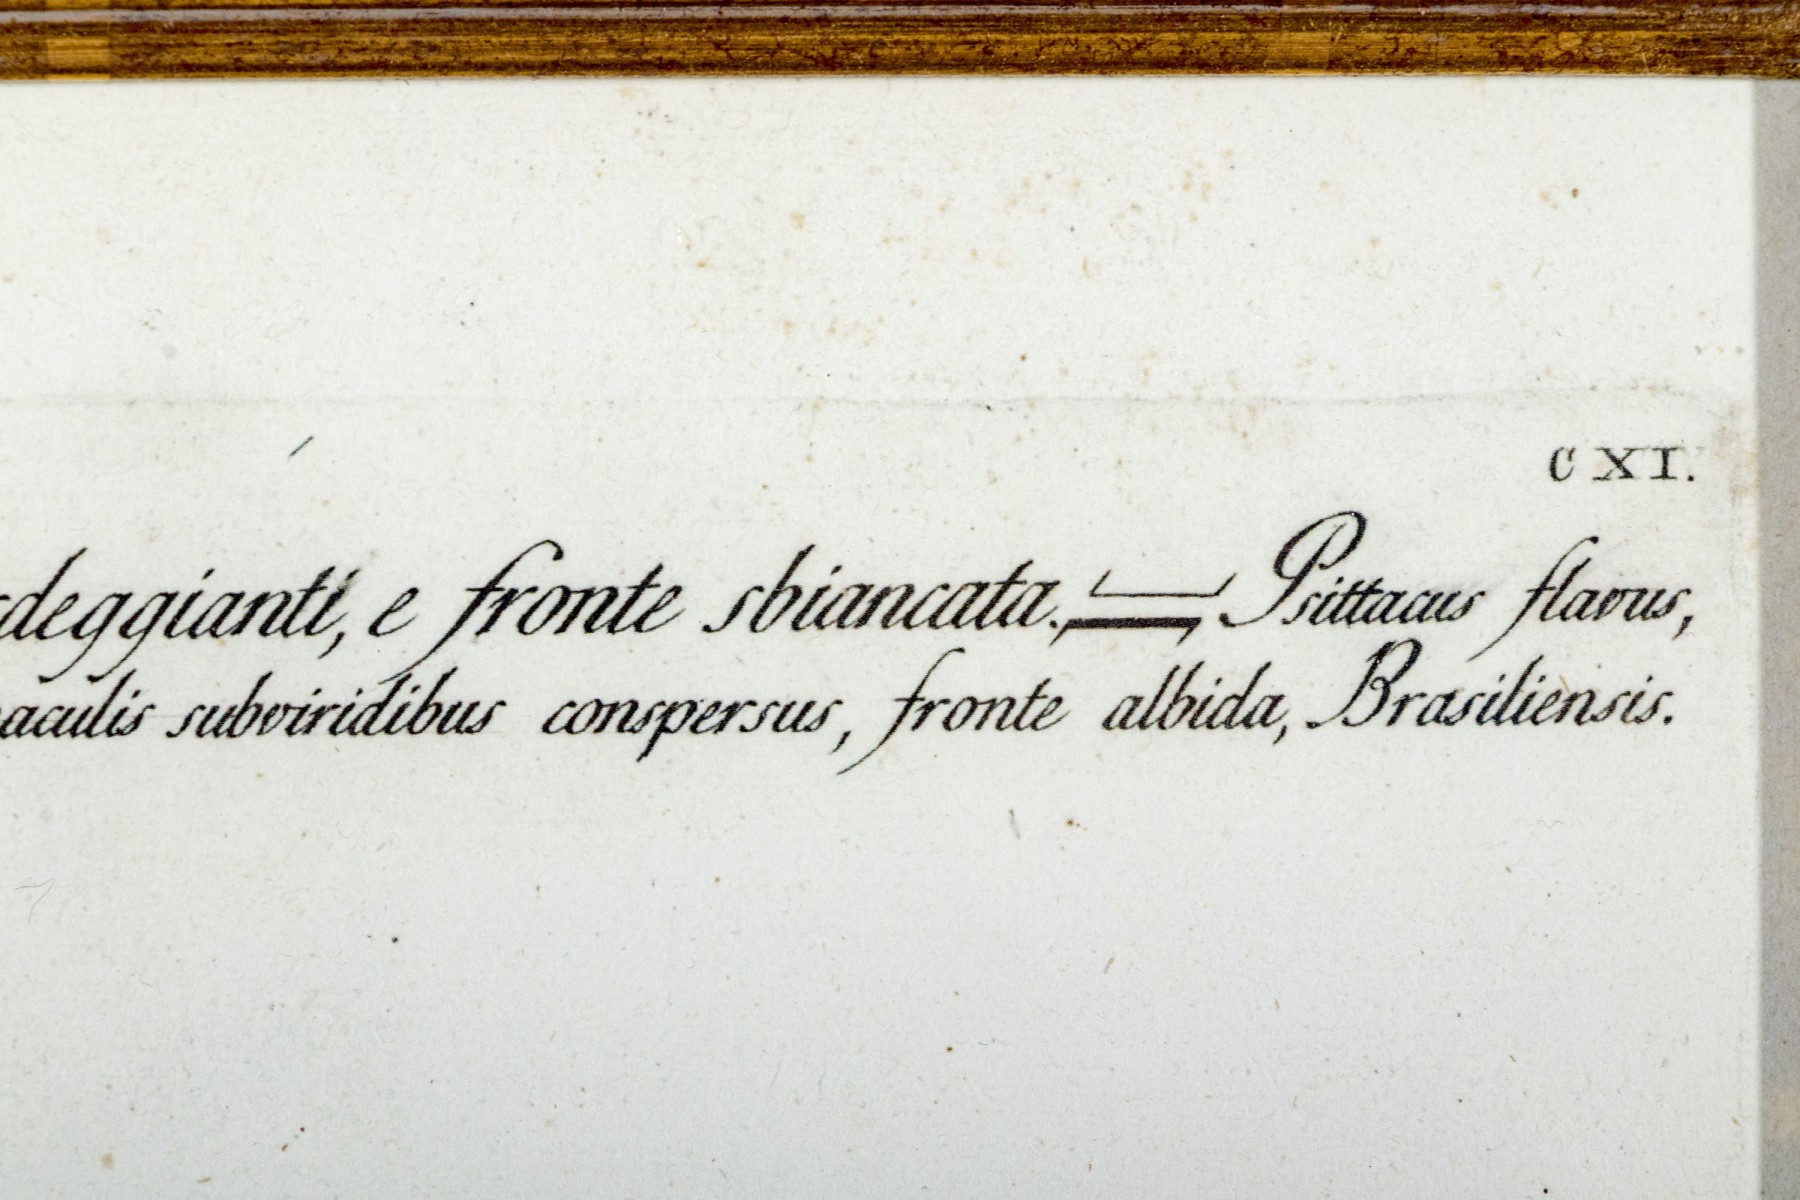 C XI.
deggianti, e fronte sbiancata. Psittacus flavus,
aculis subviridibus conspersus, fronte albida, Brasiliensis.